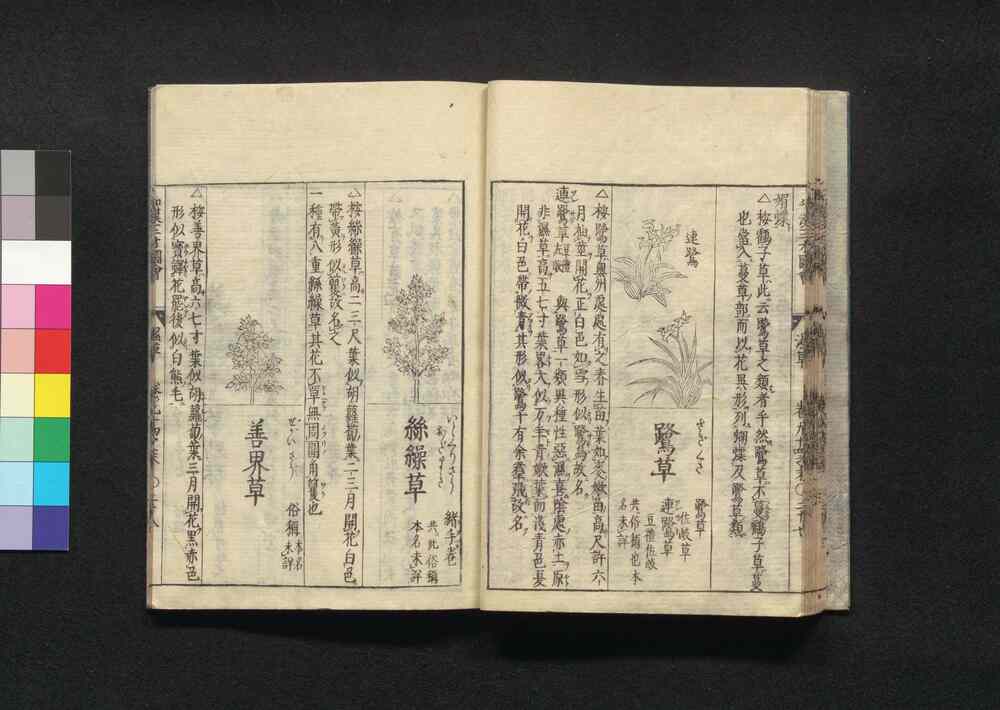 蝴蝶
△按鶴子草此云鷺草之類者乎然鷺草不蔓鶴子草蔓
也當入蔓草部而以花異形列蝴蝶及鷺草類
連鷺
鷺草
さぎくさ
鷺草
佐岐草
連鷺草
豆禮佐岐
共俗稱也本
名未詳
△按鷺草奧州處處有之春生苗葉如麥嫩苗高尺許六
月抽莖開花正白色如雪形似鷺爲故名
連鷺草 與鷺草一類異種性惡濕喜陰處赤土原
非濕草高五七寸葉畧大似万年青嫩葉而淺青色夏
開花白色帶微青其形似鷺千有余羣飛故名
絲繰草
いとくりさう
緒手卷
共此俗稱
本名未詳
△按絲繰草高二三尺葉似胡蘿蔔葉二三月開花白色
帶黃形似
一種有八重絲繰草其花不單無周圍角
善界草
ぜかいさう
俗稱
本名
未詳
△按善界草高六七寸葉似胡蘿蔔葉三月開花黑赤色
形似寶鐸花罷後似白熊毛
和漢三才圖會
濕草